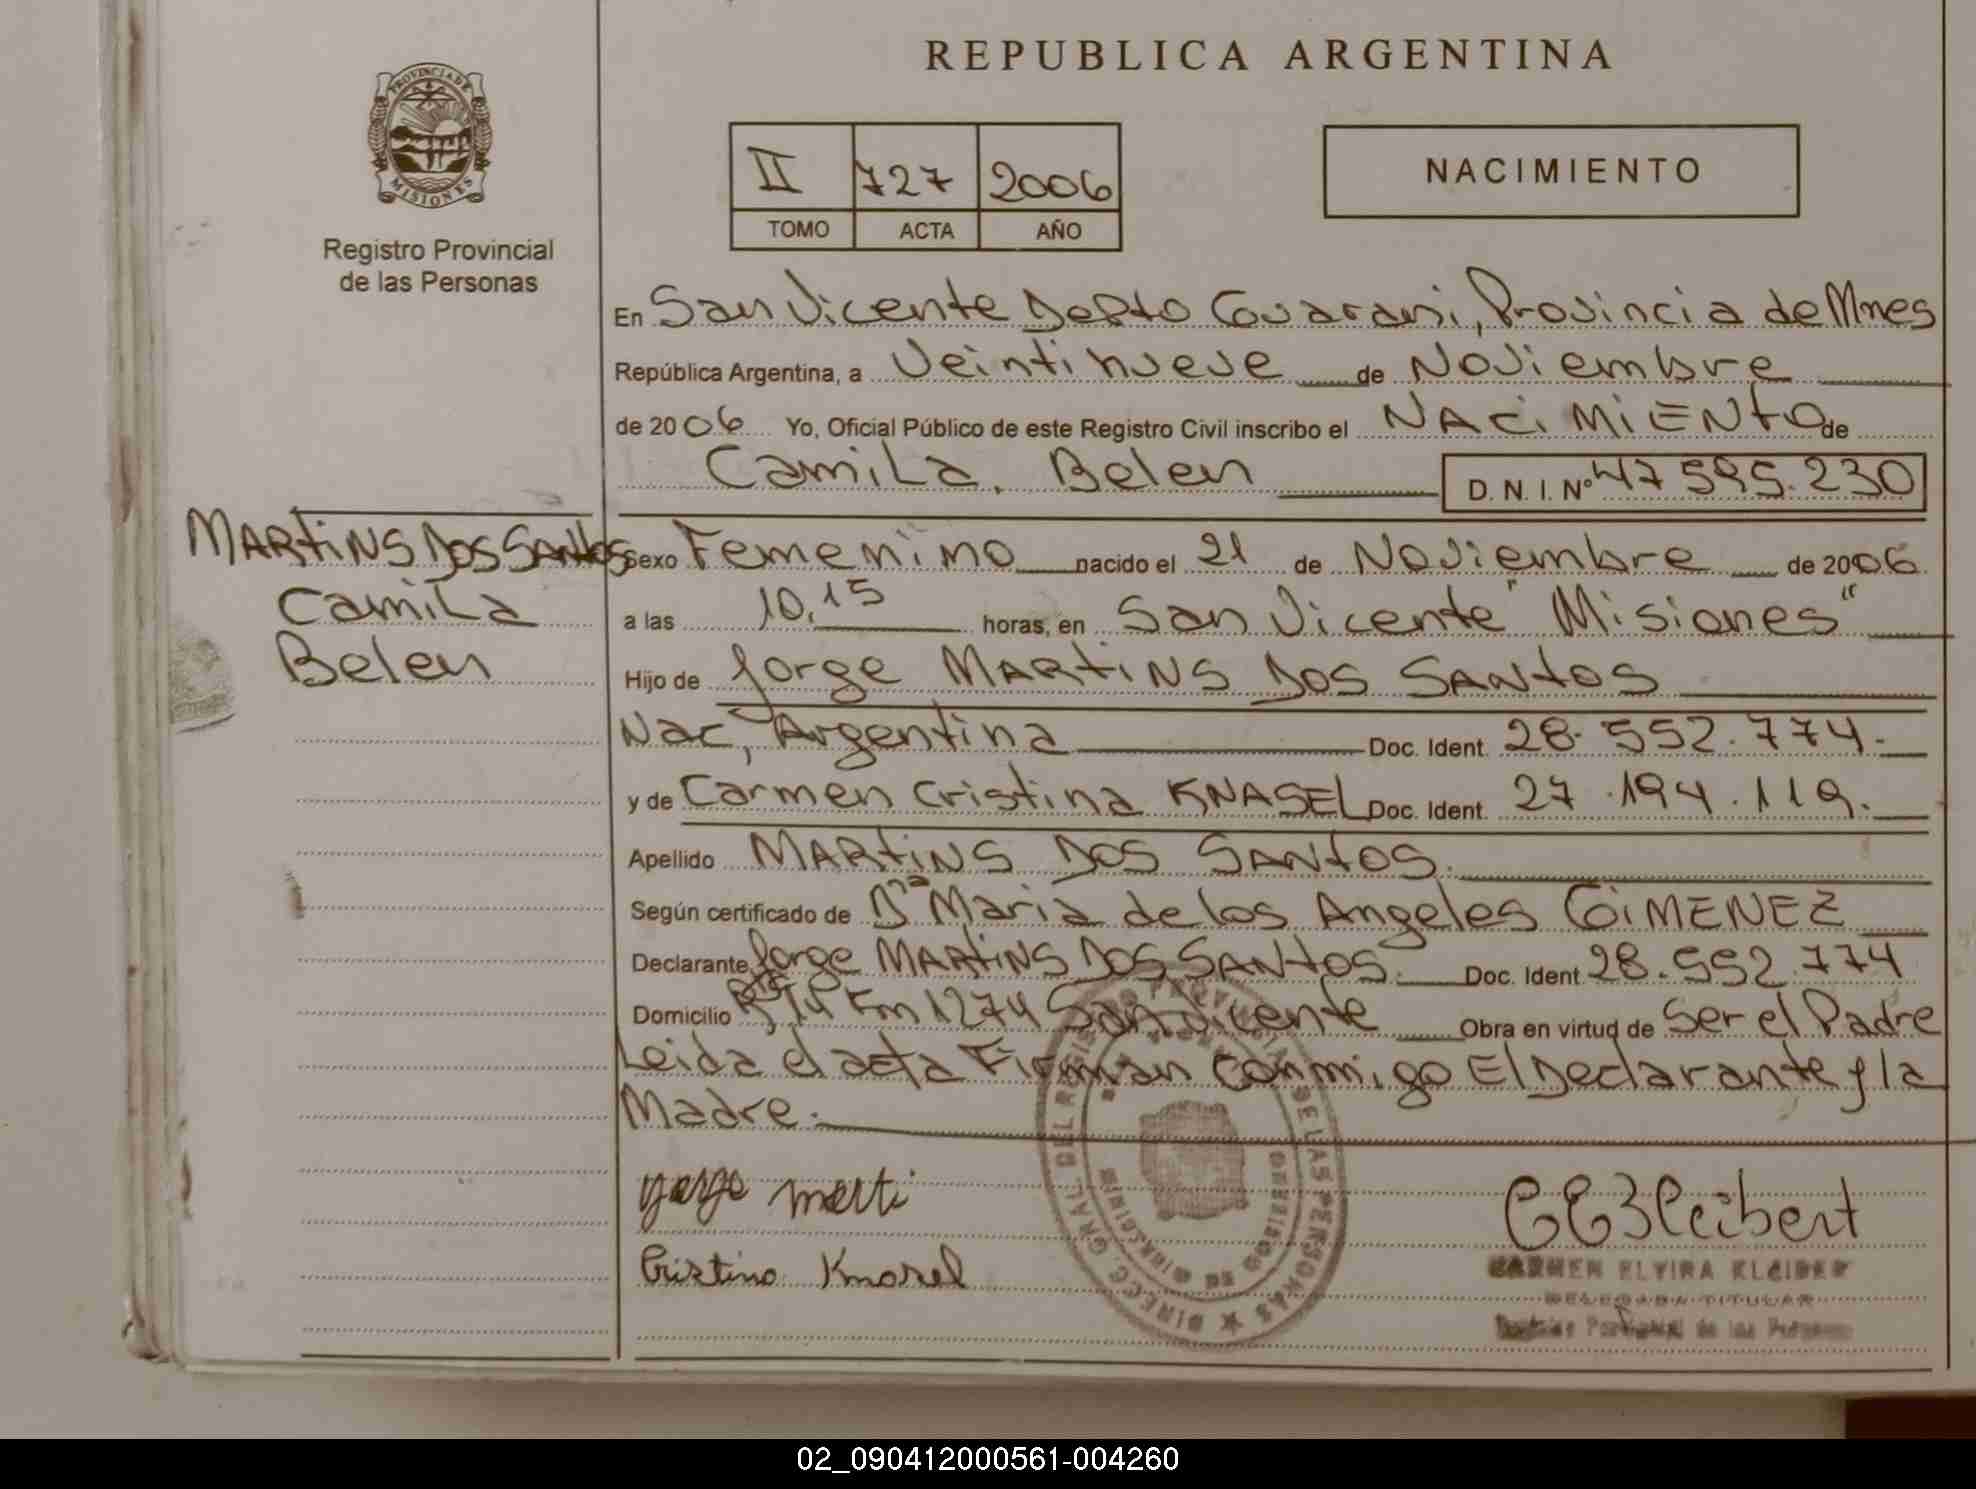 REPUBLICA ARGENTINA
PROVINCIA DE
MISIONES
Registro Provincial
de las Personas
II 727 2006
TOMO ACTA AÑO
NACIMIENTO
En San Vicente Depto Guarani, Provincia de Mnes
República Argentina, a Veintinueve de Noviembre
de 2006 Yo, Oficial Público de este Registro Civil inscribo el NACiMiENto de
Camila, Belen D. N. I. Nº 47 595.230
MARtiNS DOS SANtos
Camila
Belen
Sexo Femenino nacido el 21 de Noviembre de 2006
a las 10,15 horas, en San Vicente "Misiones"
Hijo de Jorge MARtiNS DOS SANtOS
Nac, Argentina Doc. Ident. 28.552.774.-
y de Carmen Cristina KNASEL Doc. Ident. 27.194.119.
Apellido MARtiNS DOS SANtOS.
Según certificado de Dra Maria de los Angeles GiMENEZ
Declarante Jorge MARtiNS DOS SANtOS. Doc. Ident 28.552.774
Domicilio 14 Km 1274 San Vicente Obra en virtud de Ser el Padre
Leida el acta Firman conmigo El Declarante y la
Madre.-
Cristina Knasel
CARMEN ELVIRA
DELEGADA TITULAR
DIREC. GRAL. DEL REGISTRO DE LAS PERSONAS
02_090412000561-004260